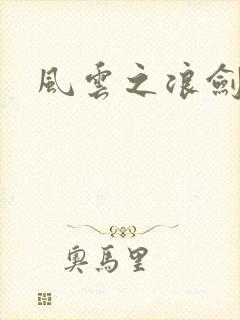 風雲之浪劍
奧馬里